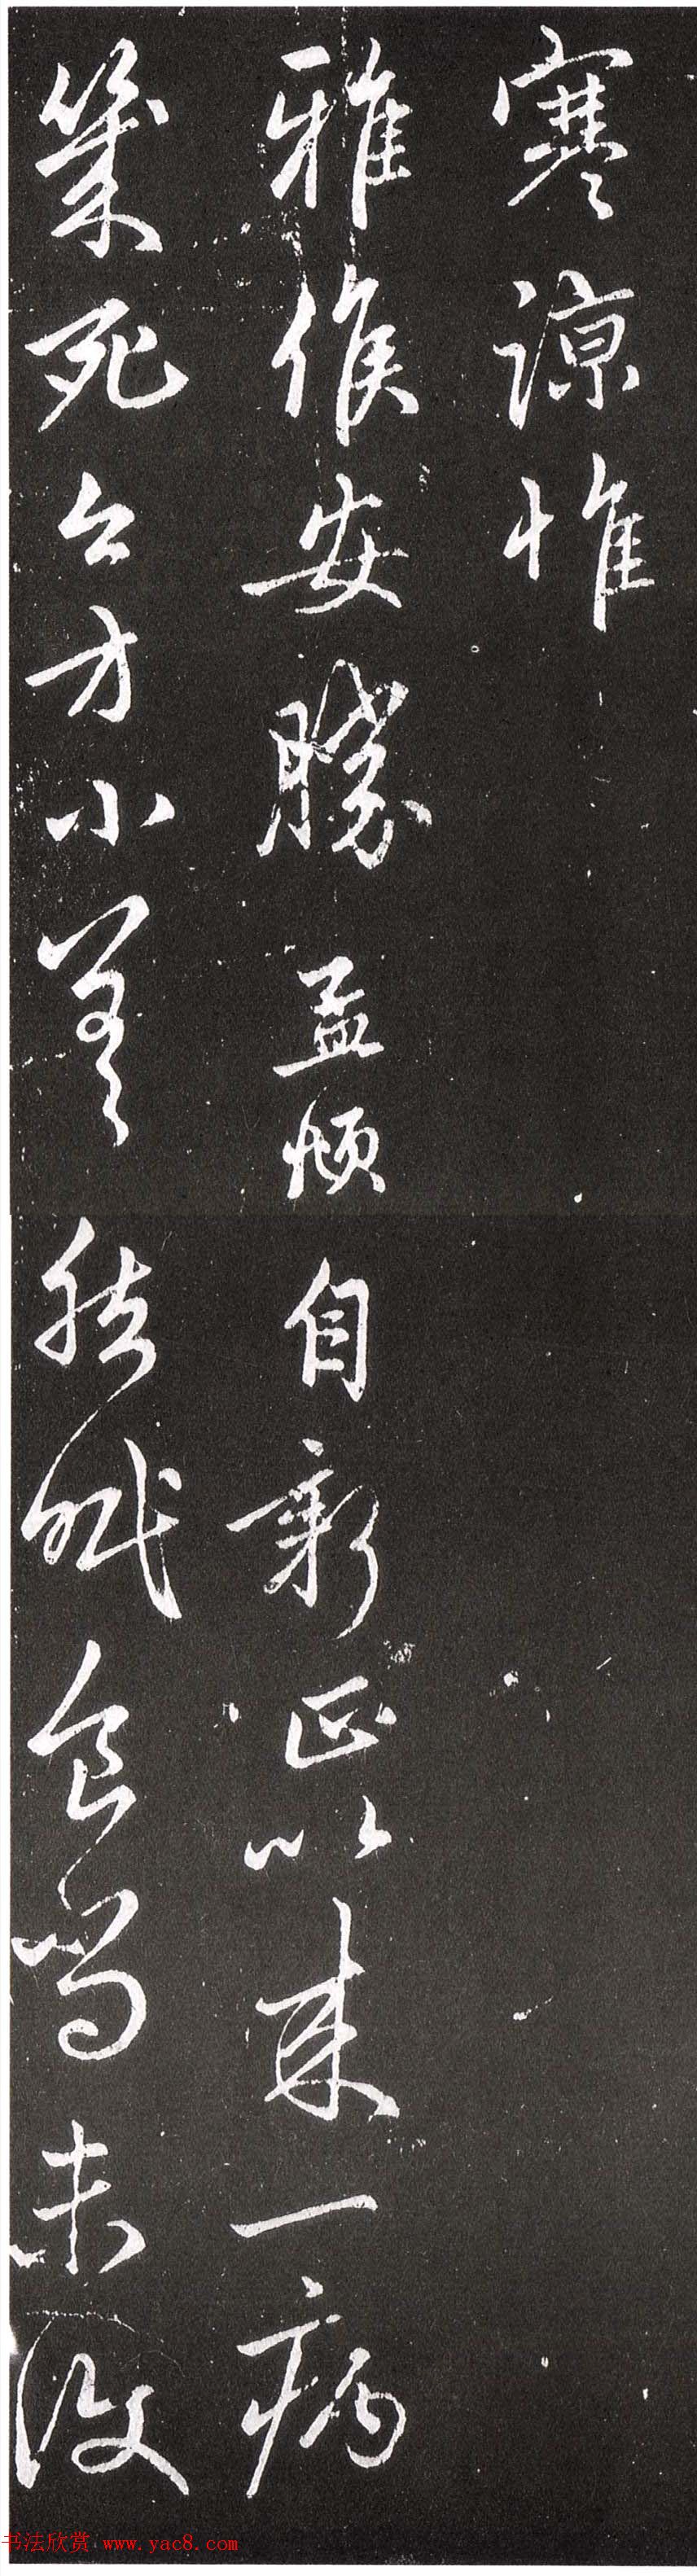 寒谅惟
雅候安胜孟頫自新正以来一病
几死今方小差然眠食尚未复
书法欣赏 www.yac8.com